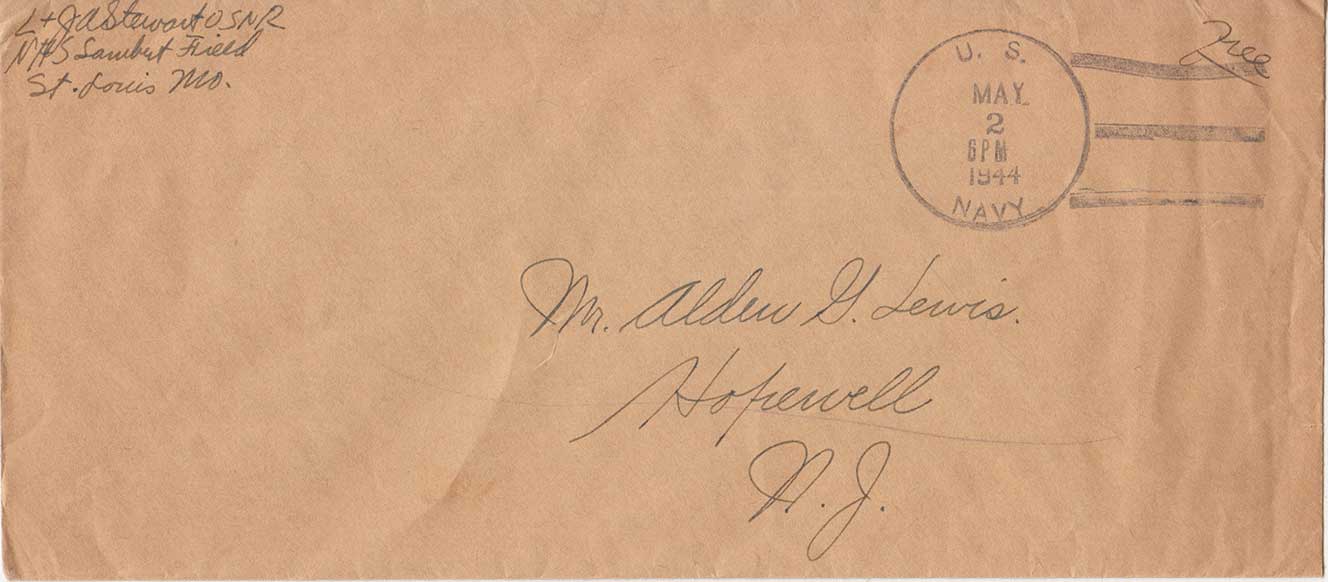 Lt J A Stewart USNR
NAS Lambert Field
St. Louis Mo.
Free
U. S.
MAY
2
6 PM
1944
NAVY
Mr. Alden G. Lewis.
Hopewell
N. J.